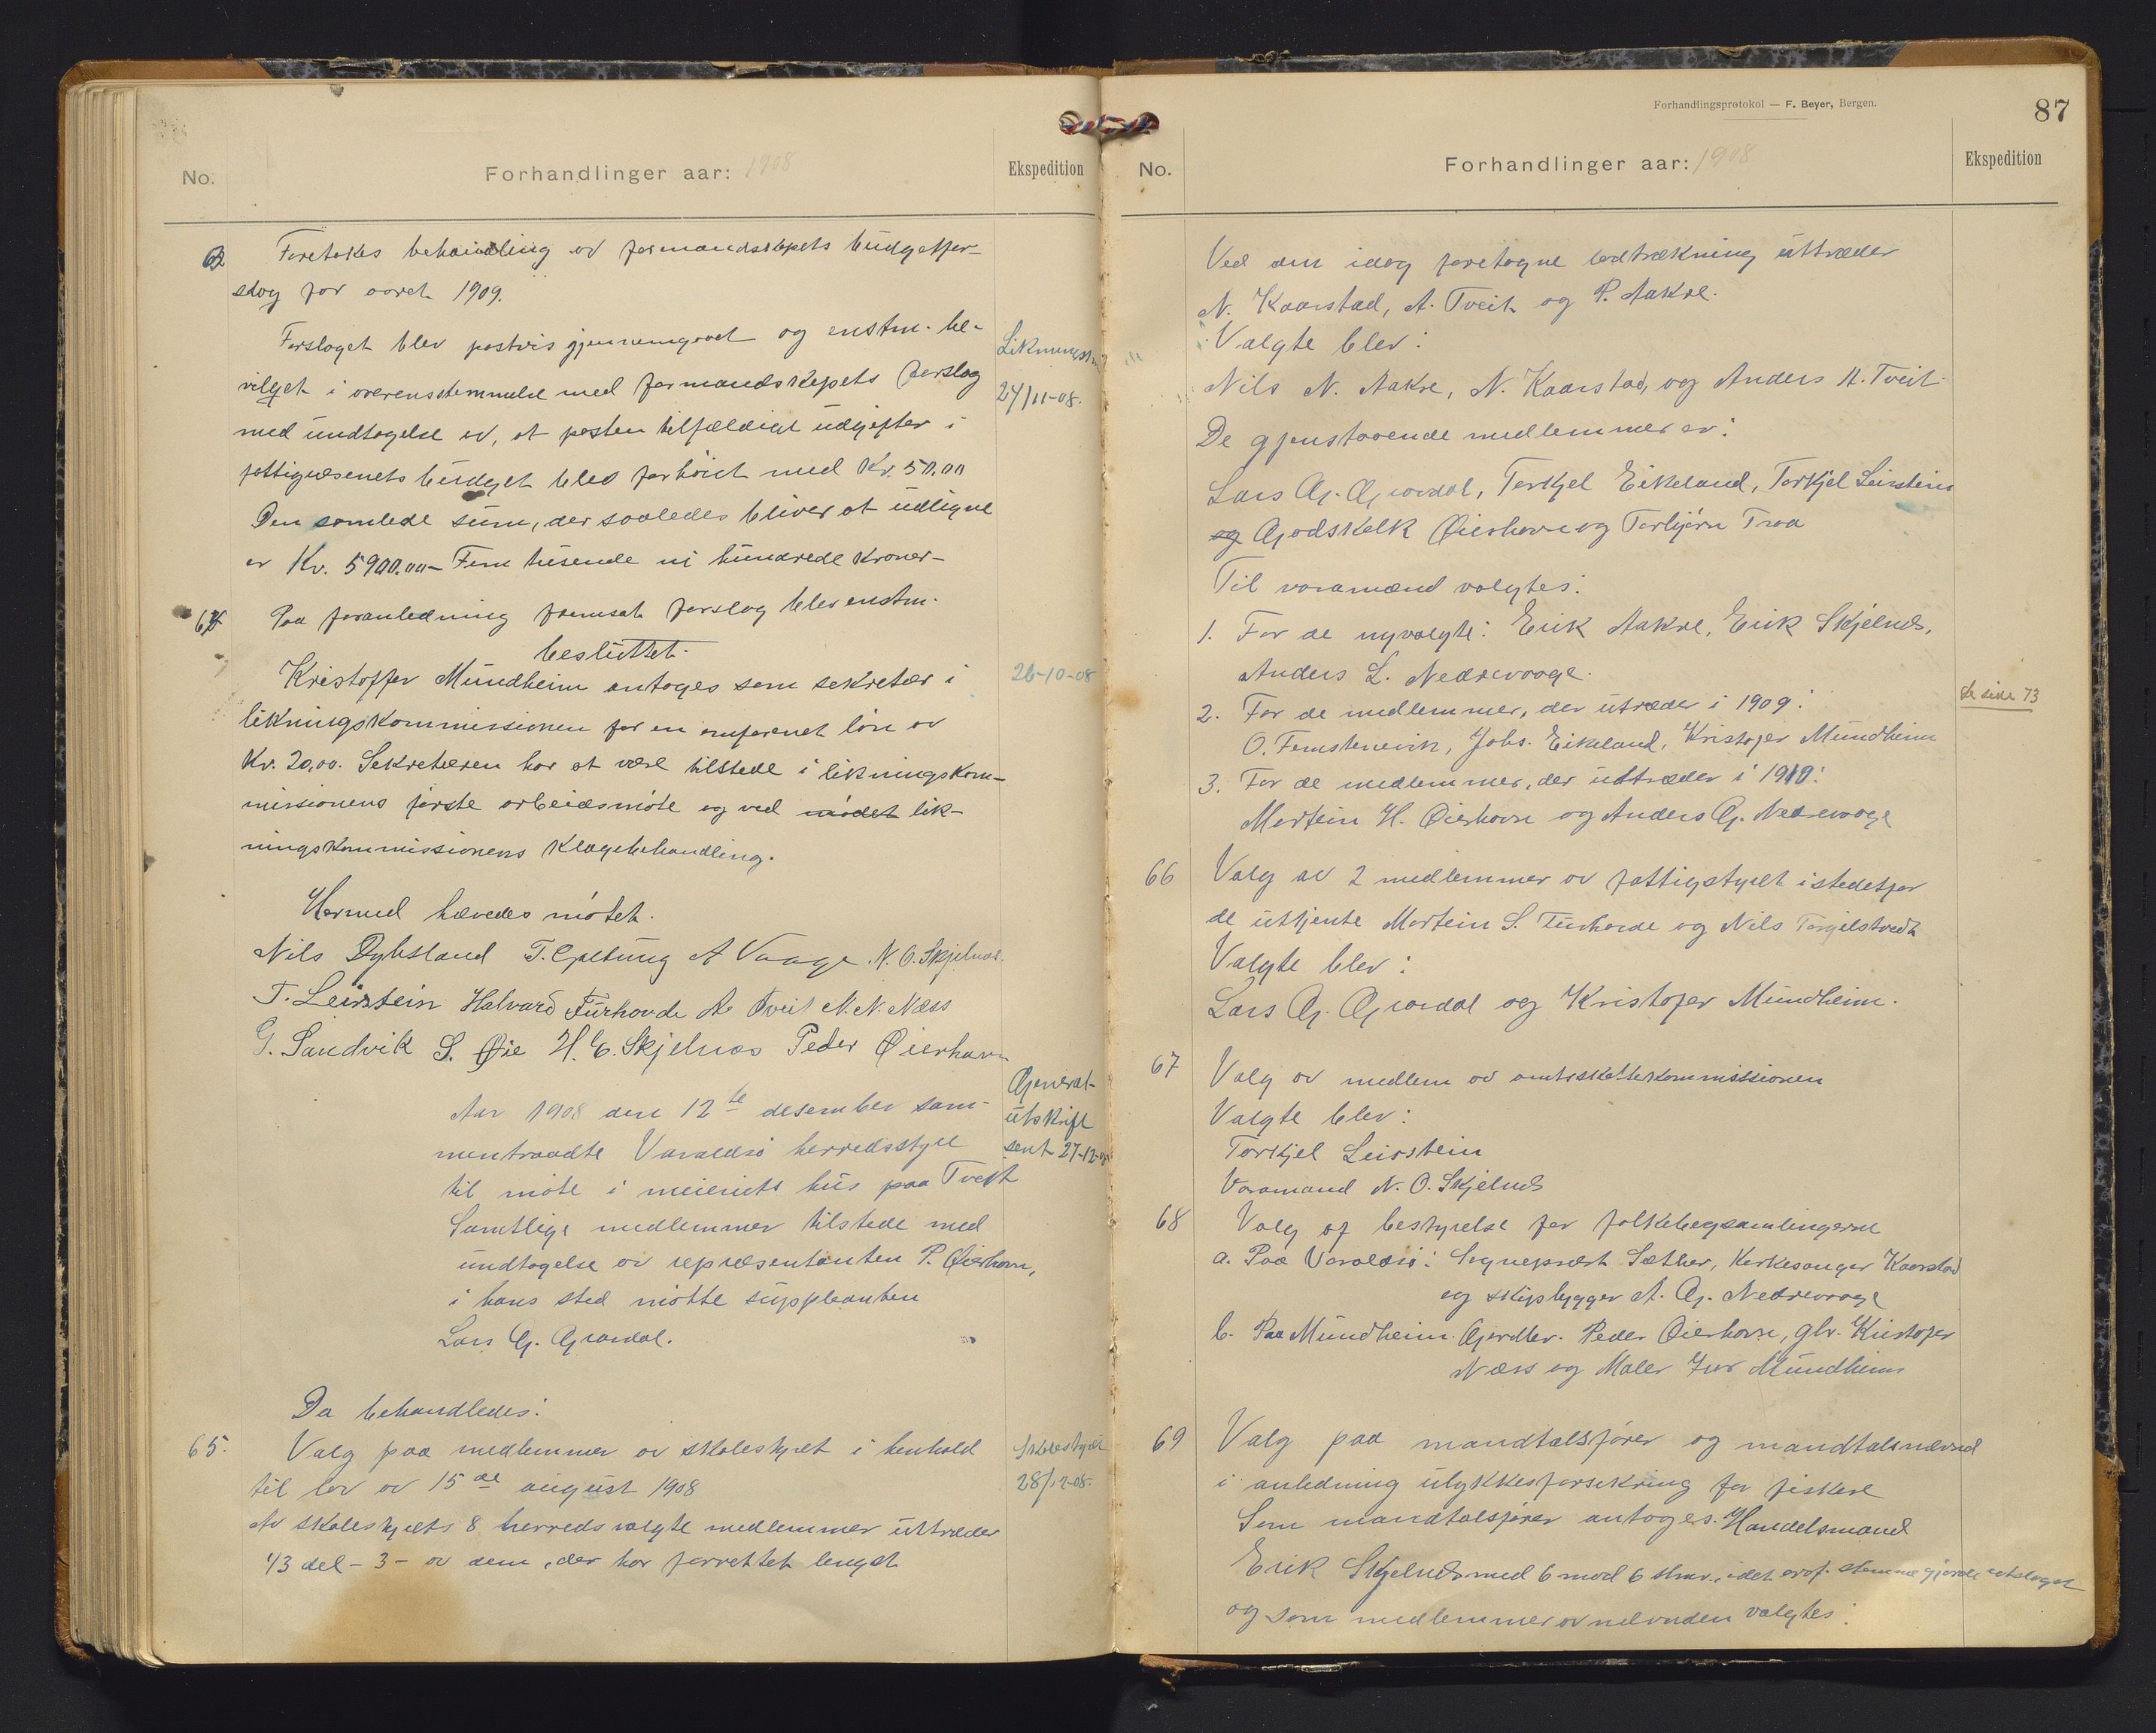 No.
Forhandlinger aar: 1908
Ekspedition
63 Foretokes behandling av formandskapets budgetfor-
slag for aaret 1909.
Forslaget blev postvis gjennemgaaet og enstm. be-
vilget i overensstemmelse med formandskapets forslag
med undtagelse av, at posten tilfældige udgifter i
fattigvæsenets budget blev forhöiet med Kr. 50.00
Den samlede sum, der saaledes bliver at udligne
er Kr. 5900.00 - Fem tusende ni hundrede kroner -
Likningskm
24/11-08.
64 Paa foranledning fremsat forslag blev enstm.
besluttet.
Kristoffer Mundheim antages som sekretær i
likningskommissionen for en omforenet lön av
Kr. 20,00. Sekretæren har at være tilstede i likningskom-
missionens förste arbeidsmöte og ved mödet lik-
ningskommissionens klagebehandling.
26-10-08
Hermed hævedes mötet.
Nils Dybsland T. Gjetung A Vaage N. O. Skjelnæs.
T. Leirstein Halvard Furhovde A Tveit N. N. Næss
G. Sandvik S. Øie H. E. Skjelnæs Peder Øierhavn
Aar 1908 den 12te desember sam-
mentraadte Varaldsö herredsstyre
til möte i meieriets hus paa Tveit
Samtlige medlemmer tilstede med
undtagelse av repræsentanten P. Øierhavn,
i hans sted mötte suppleanten
Lars G. Gravdal.
General-
utskrift
sent 27-12-08
Da behandledes:
65. Valg paa medlemmer av skolestyret i henhold
til lov av 15de august 1908
Av skolestyrets 8 herredsvalgte medlemmer uttræder
1/3 del - 3 - av dem, der har forrettet lengst
Skolestyret
28/12-08.
Forhandlingsprotokol — F. Beyer, Bergen.
87
No.
Forhandlinger aar: 1908
Ekspedition
Ved den idag foretagne lodtrækning uttræder
N. Kaarstad, A. Tveit og P. Aakre.
Valgte blev:
Nils N. Aakre, N. Kaarstad, og Anders H. Tveit
De gjenstaaende medlemmer er:
Lars G. Gravdal, Torkjel Eikeland, Torkjel Leirstein
og Godskalk Øierhavn og Torbjörn Traa
Til varamænd valgtes:
1. For de nyvalgte: Erik Aakre, Erik Skjelnæs,
Anders L. Nedrevaage.
2. For de medlemmer, der utræder i 1909:
O. Femstenevik, Johs. Eikeland, Kristofer Mundheim
3. For de medlemmer, der udtræder i 1910:
Mortein H. Øierhavn og Anders G. Nedrevaage
Se side 73
66 Valg av 2 medlemmer av fattigstyret istedetfor
de uttjente Mortein S. Furhovde og Nils Torgilstveit
Valgte blev:
Lars G. Gravdal og Kristofer Mundheim.
67 Valg av medlem av amtsskattekommissionen
Valgte blev:
Torkjel Leirstein
Varamand N. O. Skjelnæs
68 Valg af bestyrelse for folkebogsamlingerne
a. Paa Varaldsö: Sogneprest Sæther, Kirkesanger Kaarstad
og skipsbygger A. G. Nedrevaage
b. Paa Mundheim. Gjerdbr. Peder Øierhavn, gbr. Kristofer
Næss og Maler Ivar Mundheim
69 Valg paa mandtalsförer og mandtalsnævnd
i anledning ulykkesforsikring for fiskere
Som mandtalsförer antoges. Handelsmand
Erik Skjelnæs med 6 mod 6 stmr., idet ordf. stemme gjorde utslaget
og som medlemmer av nævnden valgtes: